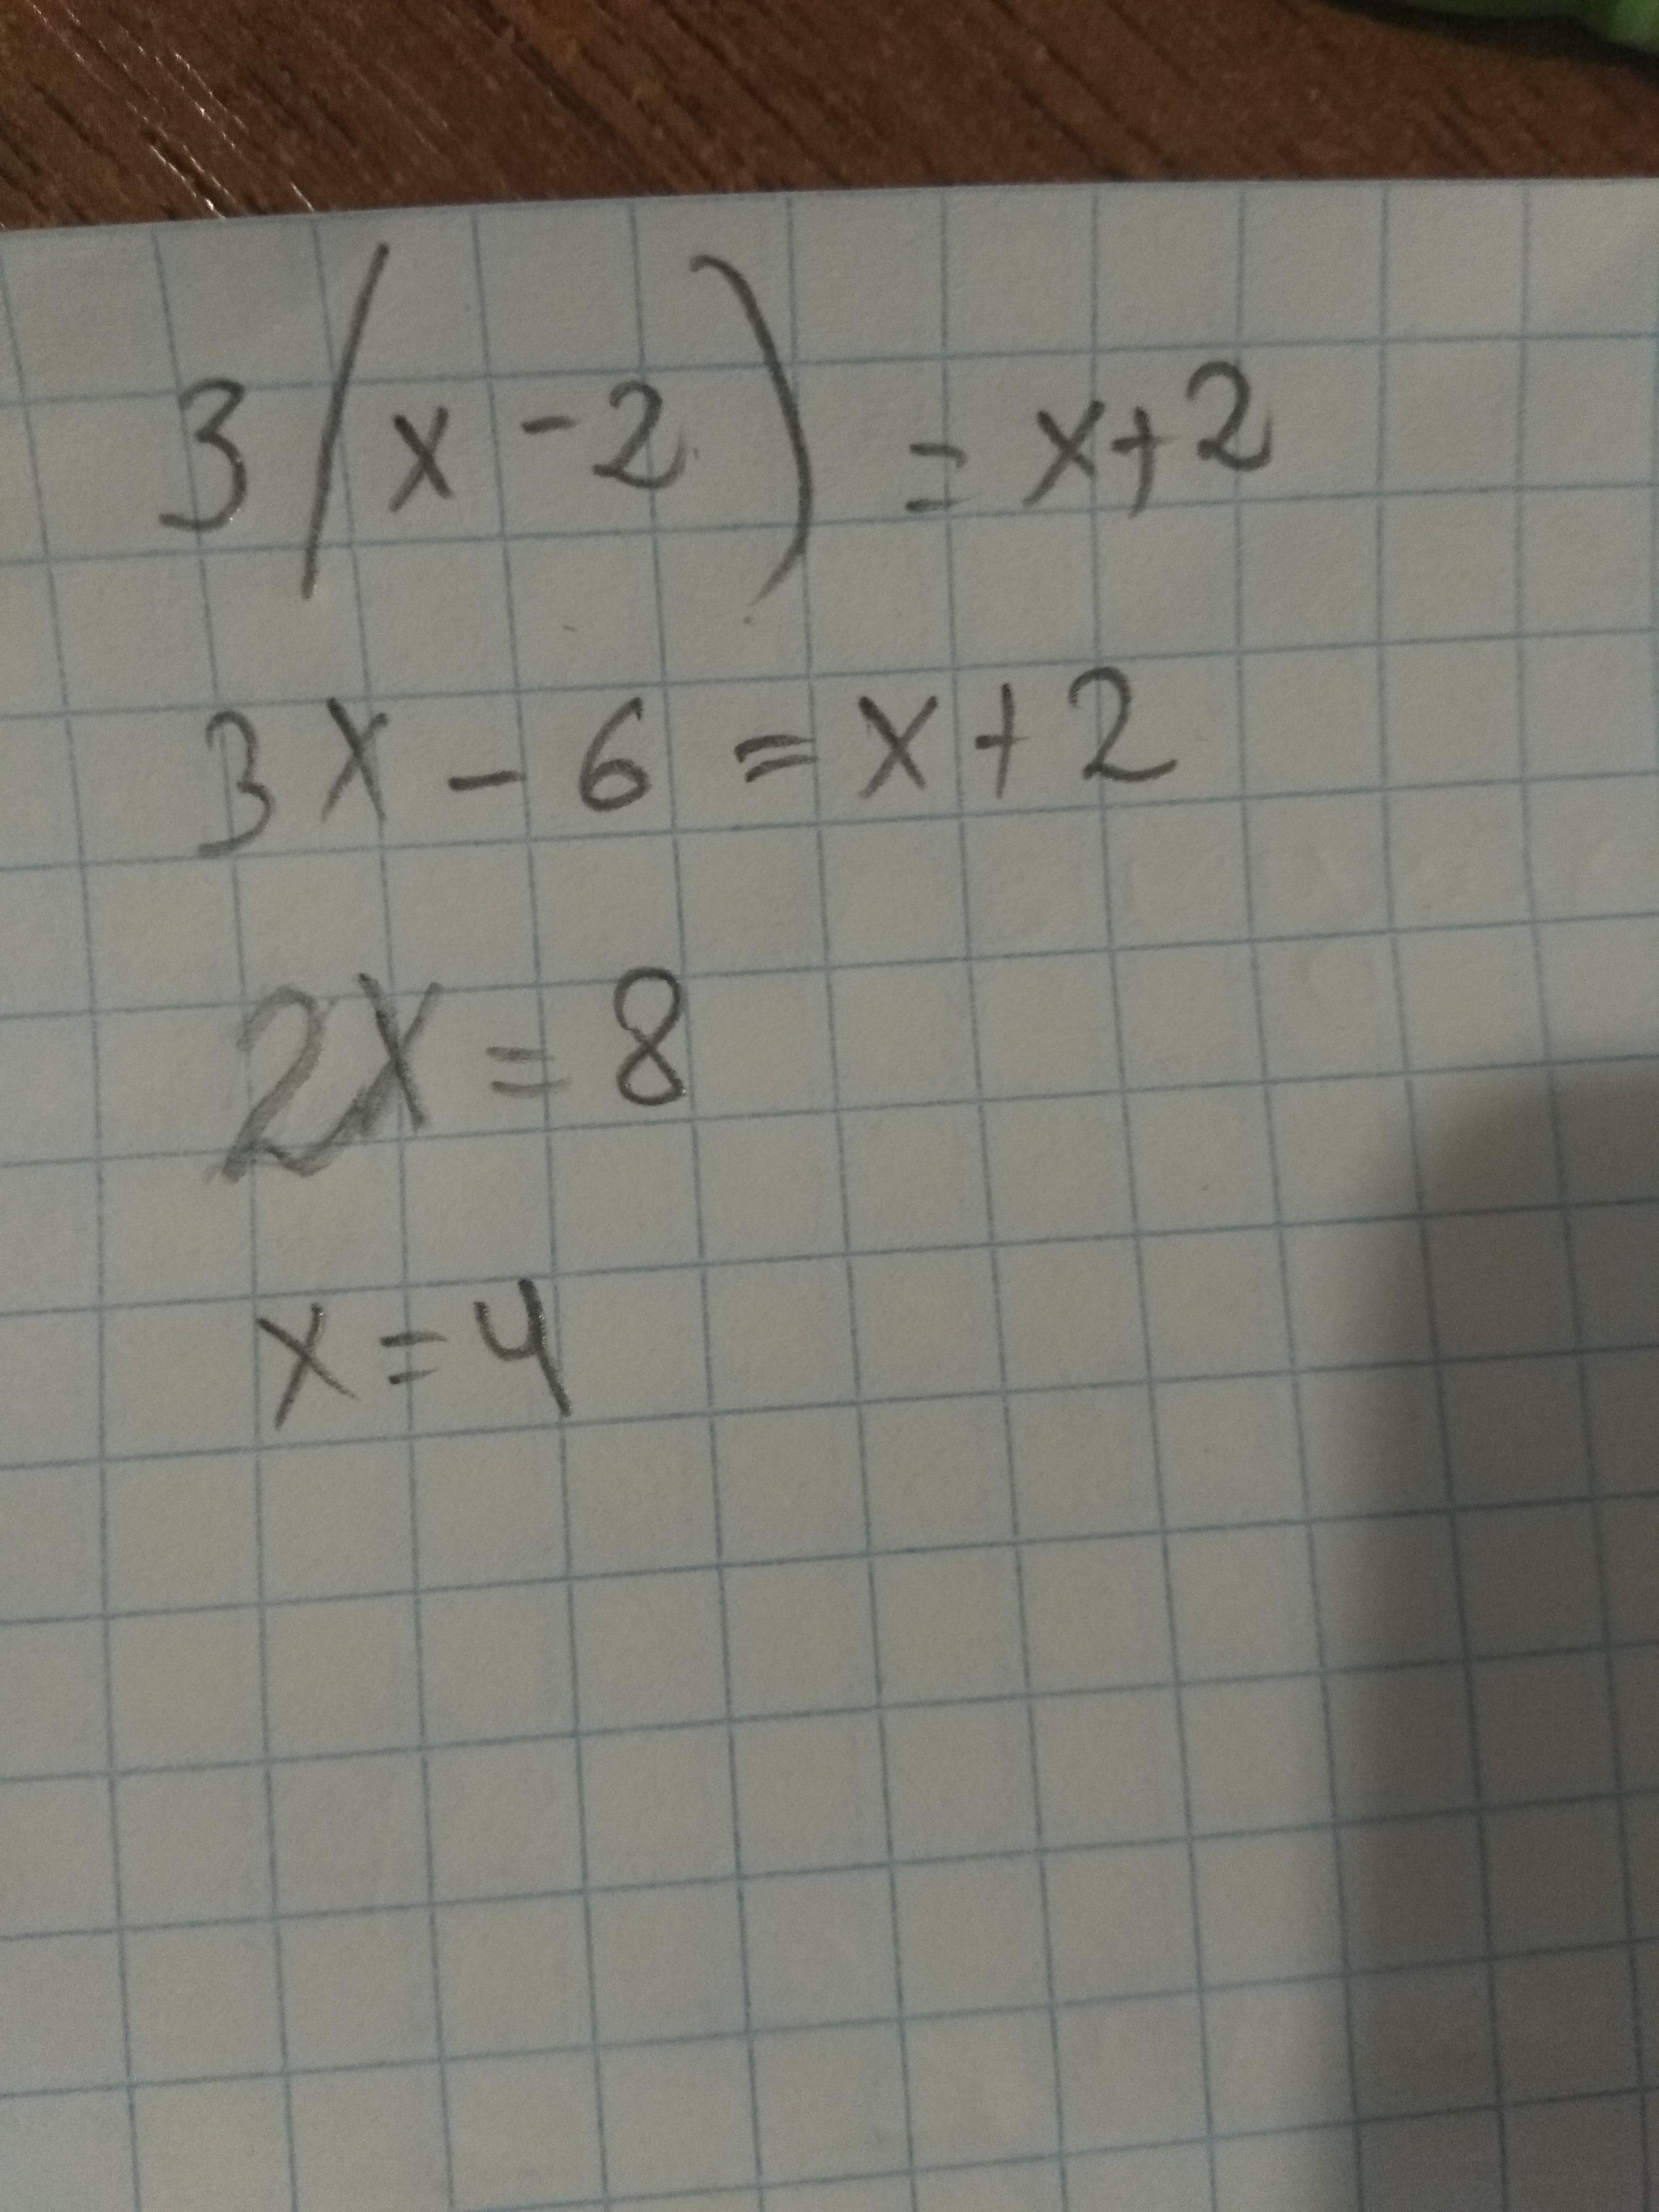 3(x-2) = x+2
3x - 6 = x + 2
2x = 8
x = 4